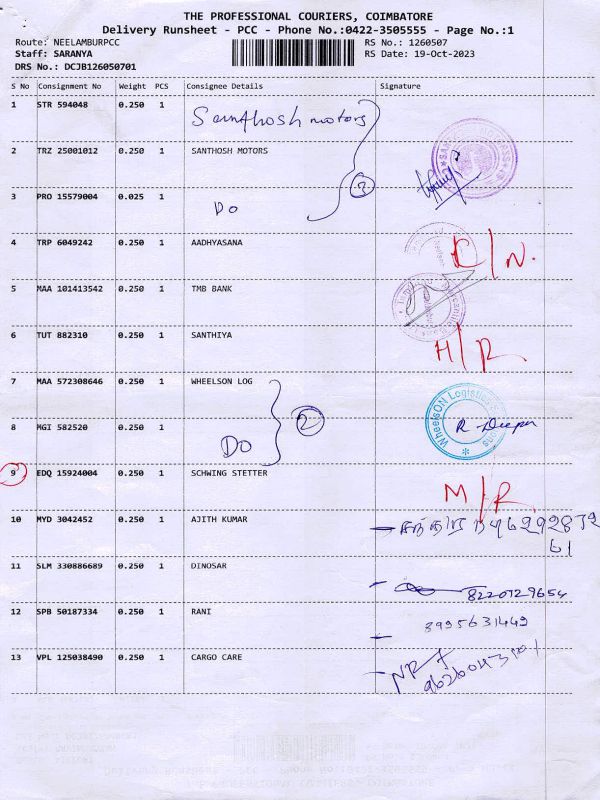 THE PROFESSIONAL COURIERS, COIMBATORE
Delivery Runsheet - PCC - Phone No.:0422-3505555 - Page No.:1
Route: NEELAMBURPCC RS No.: 1260507
Staff: SARANYA RS Date: 19-Oct-2023
DRS No.: DCJB126050701
S No Consignment No Weight PCS Consignee Details Signature
1 STR 594048 0.250 1 Santhosh motors
2 TRZ 25001012 0.250 1 SANTHOSH MOTORS
3 PRO 15579004 0.025 1 DO 3
4 TRP 6049242 0.250 1 AADHYASANA D/N.
5 MAA 101413542 0.250 1 TMB BANK
6 TUT 882310 0.250 1 SANTHIYA H/R
7 MAA 572308646 0.250 1 WHEELSON LOG WheelsON Logistics
8 MGI 582520 0.250 1 DO 2 R. Deepa
9 EDQ 15924004 0.250 1 SCHWING STETTER M/R
10 MYD 3042452 0.250 1 AJITH KUMAR
61
11 SLM 330886689 0.250 1 DINOSAR 8220729654
12 SPB 50187334 0.250 1 RANI 8995631449
13 VPL 125038490 0.250 1 CARGO CARE